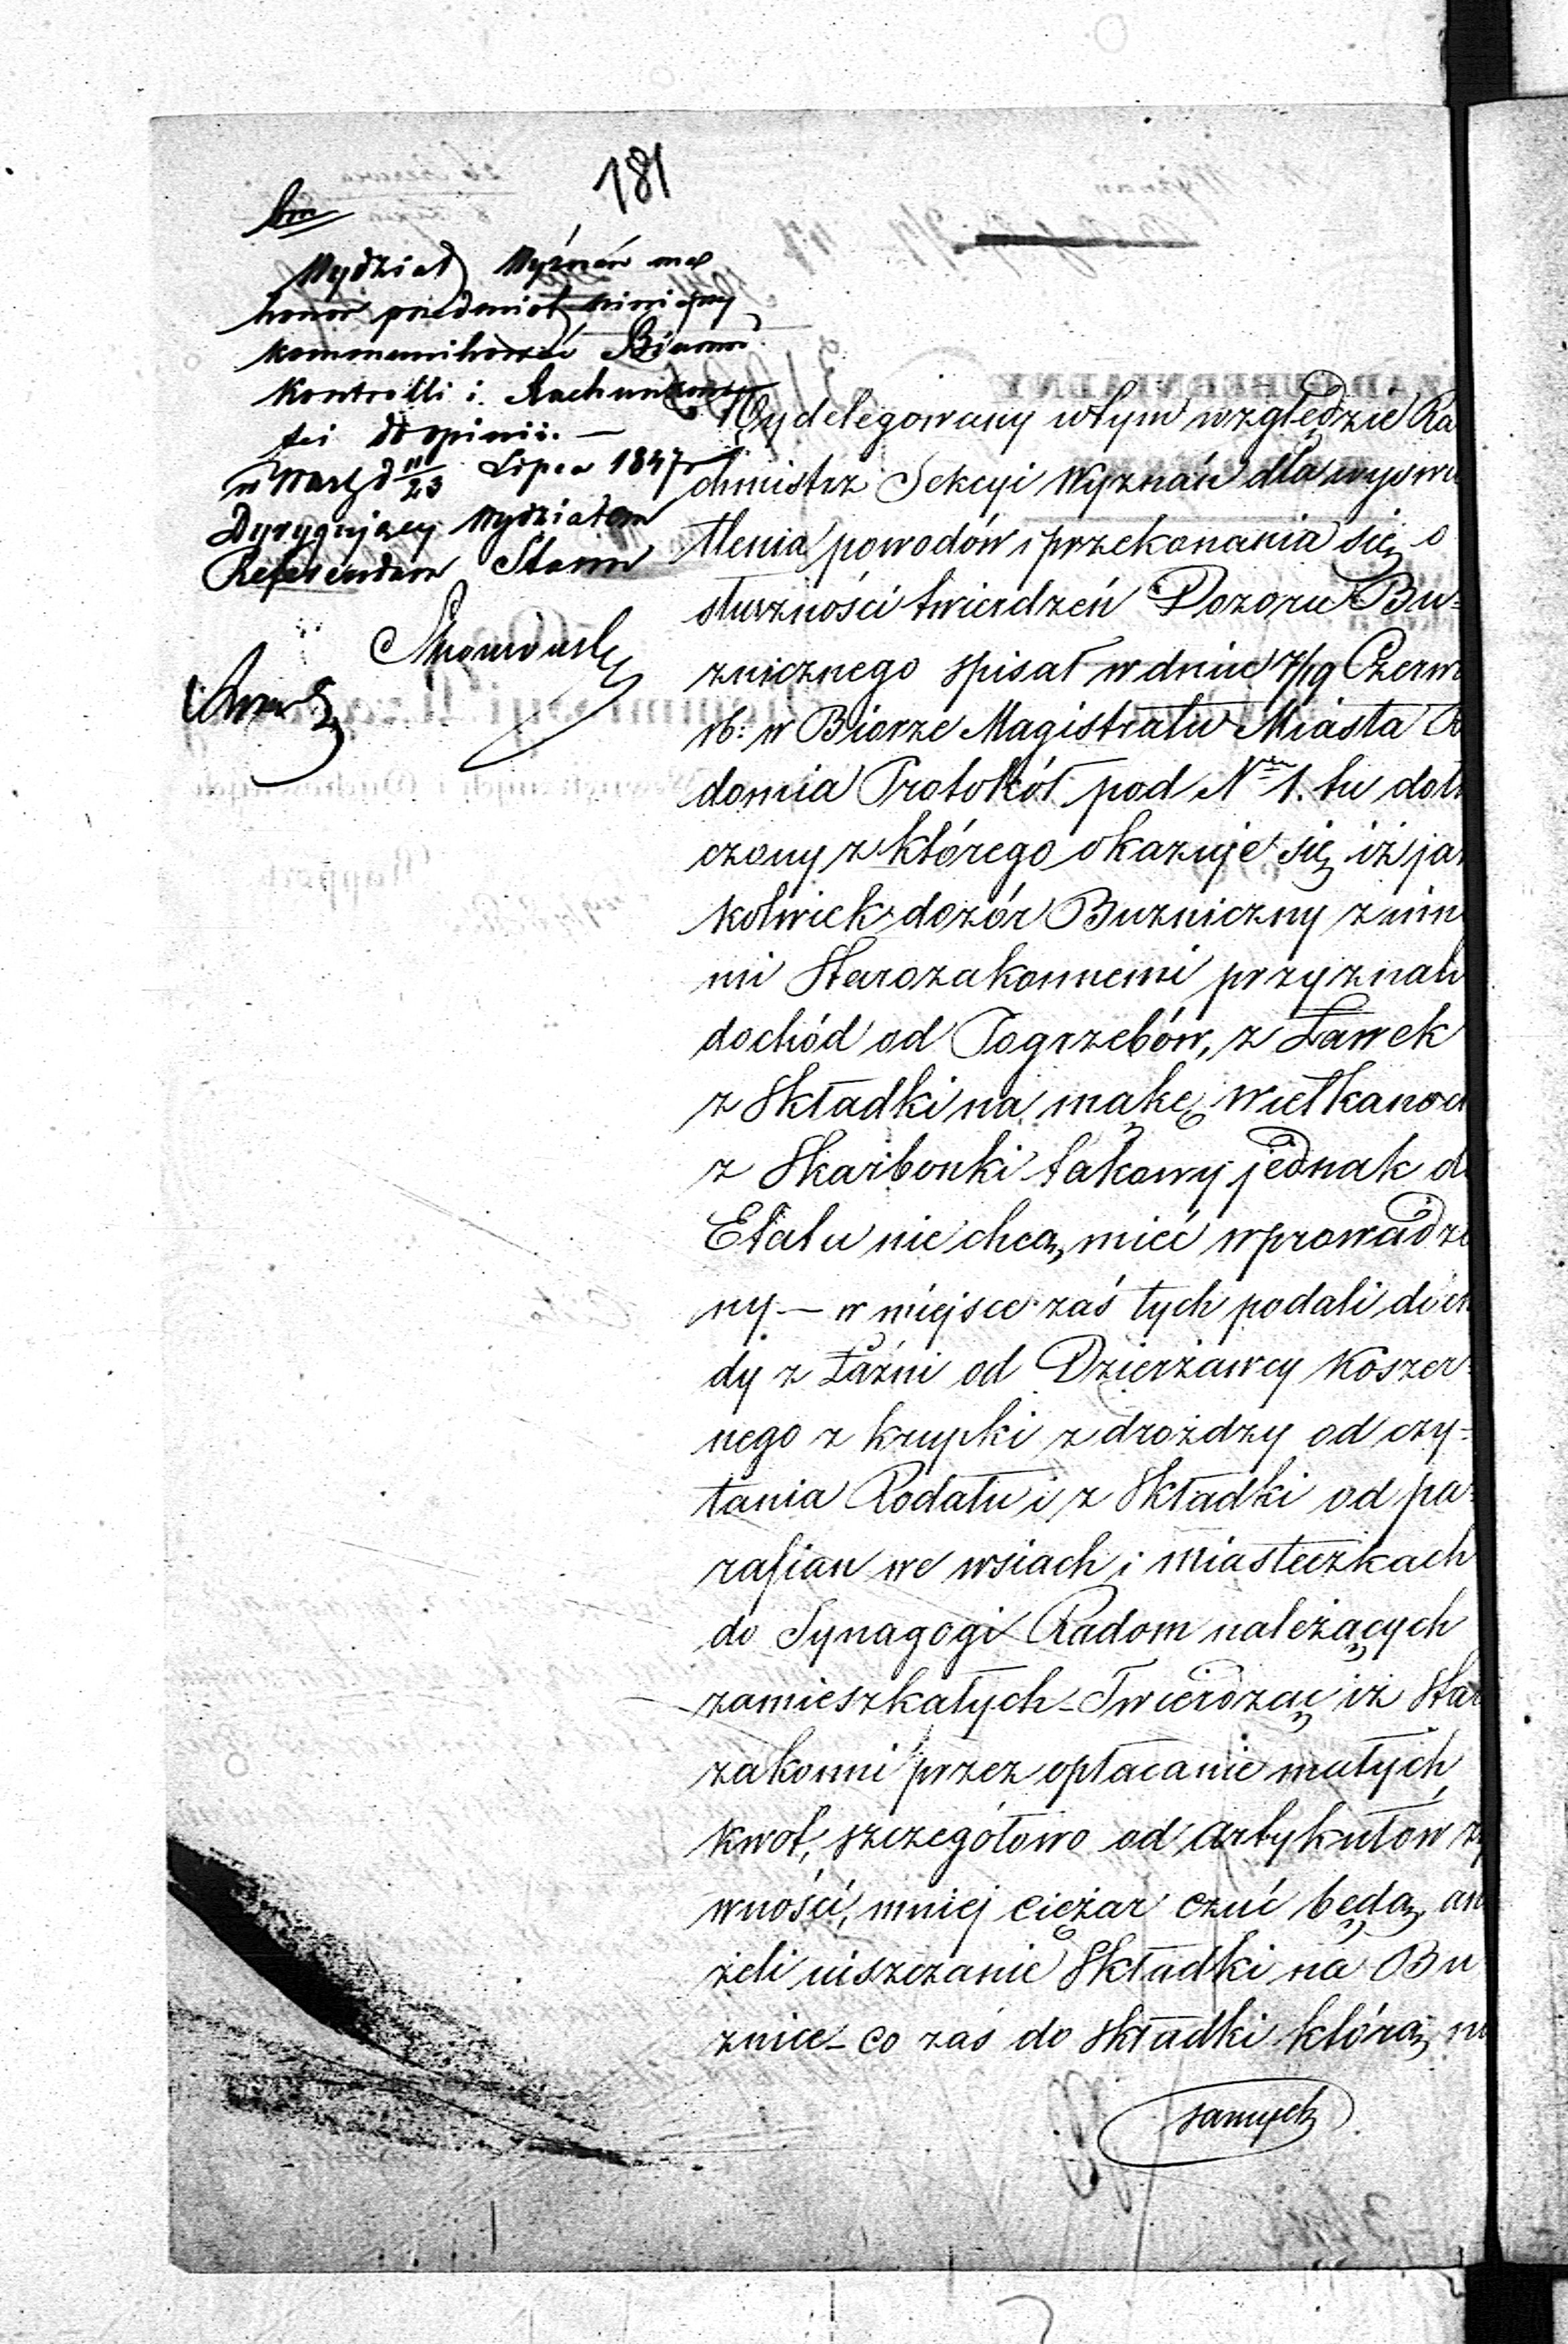 181
Wydział Wyznań ma
honor przedmiot niniejszy
kommunikować Bióru
Kontrolli i Rachunkowo
ści do opinii. —
w Warsz d 11/23 Lipca 1847 r
Dyrygujący Wydziałem
Referendarz Stanu
Wydelegowany w tym względzie Ra
chmistrz Sekcyi Wyznań dla wyświe
tlenia powodów i przekonania się o
słuszności twierdzeń Dozoru Bu=
znicznego spisał w dniu 7/19 Czerw
rb: w Biorze Magistratu Miasta R
domia Protokół pod Nrm 1. tu dołą
czony z którego okazuje się iż jak
kolwiek dozór Buzniczny z inn
mi Starozakonnemi przyznali
dochód od Pogrzebów, z Ławek
z Składki na mąkę Wielkanoc
z Skarbonki takowy jednak do
Etatu nie chcą mieć wprowadzo
ny — w miejsce zaś tych podali doch
dy z Łaźni od Dzierżawcy Koszer=
nego z krupki z drożdzy od czy=
tania Rodału i z Składki od pa=
rafian we wsiach i miasteczkach
do Synagogi Radom należących
zamieszkałych – Twierdząc iż Star
zakonni przez opłacanie małych
kwot, szczegółowo od artykułów ży
wności, mniej ciężar czuć będą, ani
żeli uiszczanie Składki na Bu
znice – co zaś do składki którą m
samych